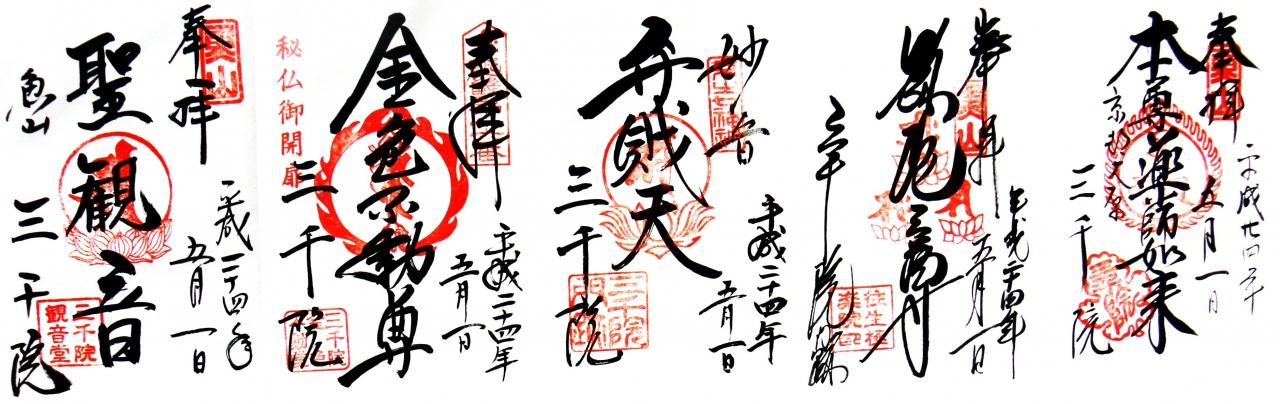 奉拝
平成二十四年
五月一日
聖観音
魚山
三千院
三千院
観音堂
奉拝
平成二十四年
五月一日
金色不動尊
秘仏御開扉
三千院
三千院
妙音
平成二十四年
五月一日
弁財天
三千院
奉拝
平成二十四年
五月一日
三千院
往生極
楽院印
奉拝
平成廿四年
五月一日
本尊薬師如来
京都大原
三千院